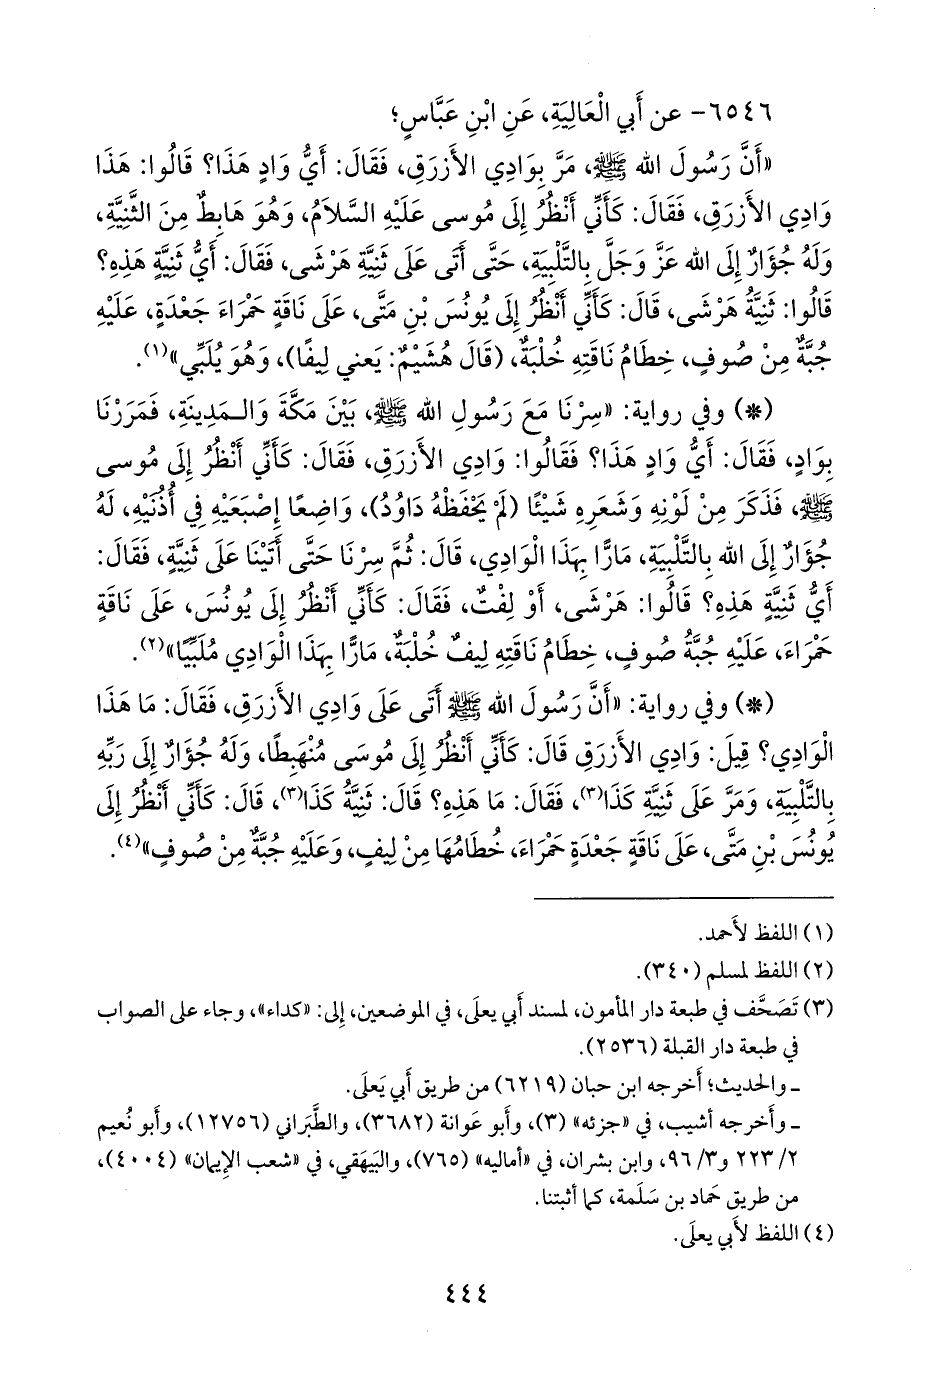 ٦٥٤٦- عن أَبي الْعَالِيَةِ، عَنِ ابْنِ عَبَّاسٍ؛
«أَنَّ رَسُولَ الله ﷺ، مَرَّ بِوَادِي الأَزْرَقِ، فَقَالَ: أَيُّ وَادٍ هَذَا؟ قَالُوا: هَذَا
وَادِي الأَزْرَقِ، فَقَالَ: كَأَنِّي أَنْظُرُ إِلَى مُوسى عَلَيْهِ السَّلَامُ، وَهُوَ هَابِطٌ مِنَ الثَّنِيَّةِ،
وَلَهُ جُؤَارٌ إِلَى الله عَزَّ وَجَلَّ بِالتَّلْبِيَةِ، حَتَّى أَتَى عَلَى ثَنِيَّةِ هَرْشَى، فَقَالَ: أَيُّ ثَنِيَّةٍ هَذِهِ؟
قَالُوا: ثَنِيَّةُ هَرْشَى، قَالَ: كَأَنِّي أَنْظُرُ إِلَى يُونُسَ بْنِ مَتَّى، عَلَى نَاقَةٍ حَمْرَاءَ جَعْدَةٍ، عَلَيْهِ
جُبَّةٌ مِنْ صُوفٍ، خِطَامُ نَاقَتِهِ خُلْبَةٌ، (قَالَ هُشَيْمٌ: يَعني لِيفًا)، وَهُوَ يُلَبِّي»(١).
(*) وفي رواية: «سِرْنَا مَعَ رَسُولِ الله ﷺ، بَيْنَ مَكَّةَ وَالـمَدِينَةِ، فَمَرَرْنَا
بِوَادٍ، فَقَالَ: أَيُّ وَادٍ هَذَا؟ فَقَالُوا: وَادِي الأَزْرَقِ، فَقَالَ: كَأَنِّي أَنْظُرُ إِلَى مُوسى
ﷺ، فَذَكَرَ مِنْ لَوْنِهِ وَشَعَرِهِ شَيْئًا (لَمْ يَحْفَظْهُ دَاوُدُ)، وَاضِعًا إِصْبَعَيْهِ فِي أُذُنَيْهِ، لَهُ
جُؤَارٌ إِلَى الله بِالتَّلْبِيَةِ، مَارًّا بِهَذَا الْوَادِي، قَالَ: ثُمَّ سِرْنَا حَتَّى أَتَيْنَا عَلَى ثَنِيَّةٍ، فَقَالَ:
أَيُّ ثَنِيَّةٍ هَذِهِ؟ قَالُوا: هَرْشَى، أَوْ لِفْتٌ، فَقَالَ: كَأَنِّي أَنْظُرُ إِلَى يُونُسَ، عَلَى نَاقَةٍ
حَمْرَاءَ، عَلَيْهِ جُبَّةُ صُوفٍ، خِطَامُ نَاقَتِهِ لِيفٌ خُلْبَةٌ، مَارًّا بِهَذَا الْوَادِي مُلَبِّيًا»(٢).
(*) وفي رواية: «أَنَّ رَسُولَ الله ﷺ أَتَى عَلَى وَادِي الأَزْرَقِ، فَقَالَ: مَا هَذَا
الْوَادِي؟ قِيلَ: وَادِي الأَزْرَقِ قَالَ: كَأَنِّي أَنْظُرُ إِلَى مُوسَى مُنْهَبِطًا، وَلَهُ جُؤَارٌ إِلَى رَبِّهِ
بِالتَّلْبِيَةِ، وَمَرَّ عَلَى ثَنِيَّةِ كَذَا(٣)، فَقَالَ: مَا هَذِهِ؟ قَالَ: ثَنِيَّةُ كَذَا(٣)، قَالَ: كَأَنِّي أَنْظُرُ إِلَى
يُونُسَ بْنِ مَتَّى، عَلَى نَاقَةٍ جَعْدَةٍ حَمْرَاءَ، خُطَامُهَا مِنْ لِيفٍ، وَعَلَيْهِ جُبَّةٌ مِنْ صُوفٍ»(٤).
(١) اللفظ لأَحمد.
(٢) اللفظ لمسلم (٣٤٠).
(٣) تَصَحَّف في طبعة دار المأمون، لمسند أَبي يعلَى، في الموضعين، إِلى: «كداء»، وجاء على الصواب
في طبعة دار القبلة (٢٥٣٦).
ـ والحديث؛ أَخرجه ابن حبان (٦٢١٩) من طريق أَبي يَعلَى.
ـ وأَخرجه أشيب، في «جزئه» (٣)، وأَبو عَوانة (٣٦٨٢)، والطَّبَراني (١٢٧٥٦)، وأَبو نُعيم
٢/ ٢٢٣ و٣/ ٩٦، وابن بشران، في «أماليه» (٧٦٥)، والبَيهَقي، في «شعب الإِيمان» (٤٠٠٤)،
من طريق حَماد بن سَلَمة، كما أثبتنا.
(٤) اللفظ لأَبي يعلَى.
٤٤٤